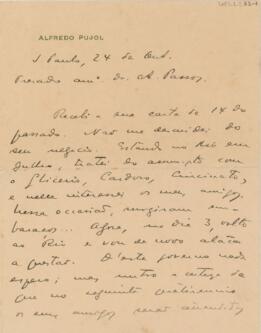 ALFREDO PUJOL
S. Paulo, 24 de Out.
Prezado am.º dr. A. Passos,
Recebi a sua carta de 14 do
passado. Não me descuidei do
seu negocio. Estando no Rio em
Julho, tratei do assumpto com
o Glicerio, Cardoso, Cincinato,
e nelle interessei os meus amigos.
Nessa occasião, surgiram em-
baraços... Agora, no dia 3, volto
ao Rio e vou de novo atacar
a questão. D'este governo nada
espero; mas nutro a certeza de
que no seguinte quatriennio
os meus amigos serão attendidos